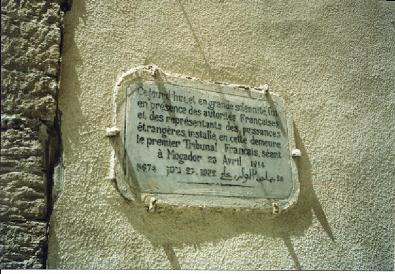 Ce jourd'hui, et en grande solennité, fut
en présence des autorités Françaises
et des représentants des puissances
étrangères, installé en cette demeure
le premier Tribunal Français, séant
à Mogador 23 Avril 1914
ניסן 27. 1922